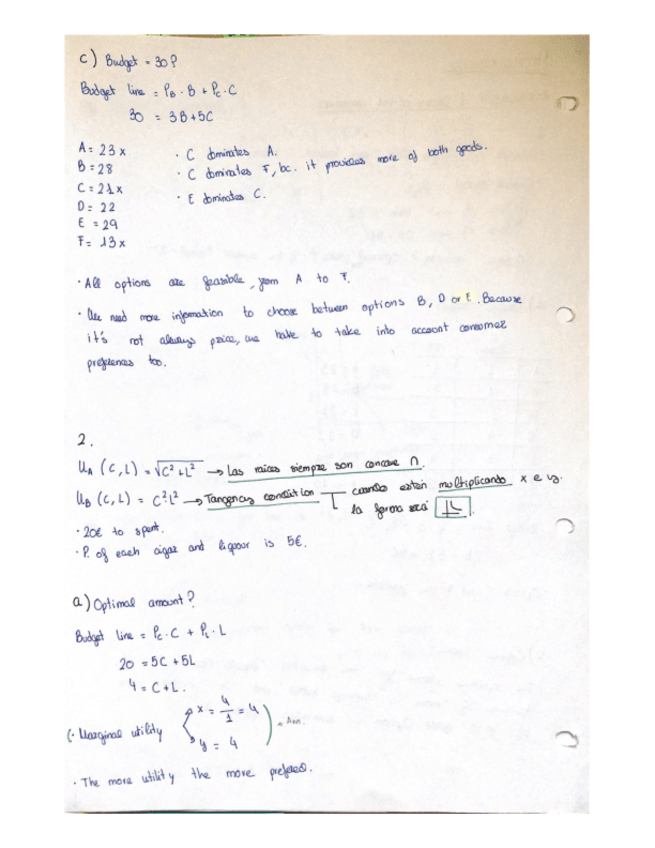 c) Budget = 30?
Budget line = PB · B + PC · C
30 = 3B + 5C
A = 23 x
B = 28
C = 21 x
D = 22
E = 29
F = 13 x
· C dominates A.
· C dominates F, bc. it provides more of both goods.
· E dominates C.
· All options are feasible, from A to F.
· We need more information to choose between options B, D or E. Because
it's not always price, we have to take into account consumer
preferences too.
2.
UA (C, L) = √C² + L² → Las raices siempre son concave ∩.
UB (C, L) = C² · L² → Tangency condition cuando estén multiplicando x e y.
la forma será
· 20€ to spent.
· P. of each cigar and liquour is 5€.
a) Optimal amount?
Budget line = PC · C + PL · L
20 = 5C + 5L
4 = C + L.
(· Marginal utility x = 4/1 = 4
y = 4
· The more utility the more prefered.